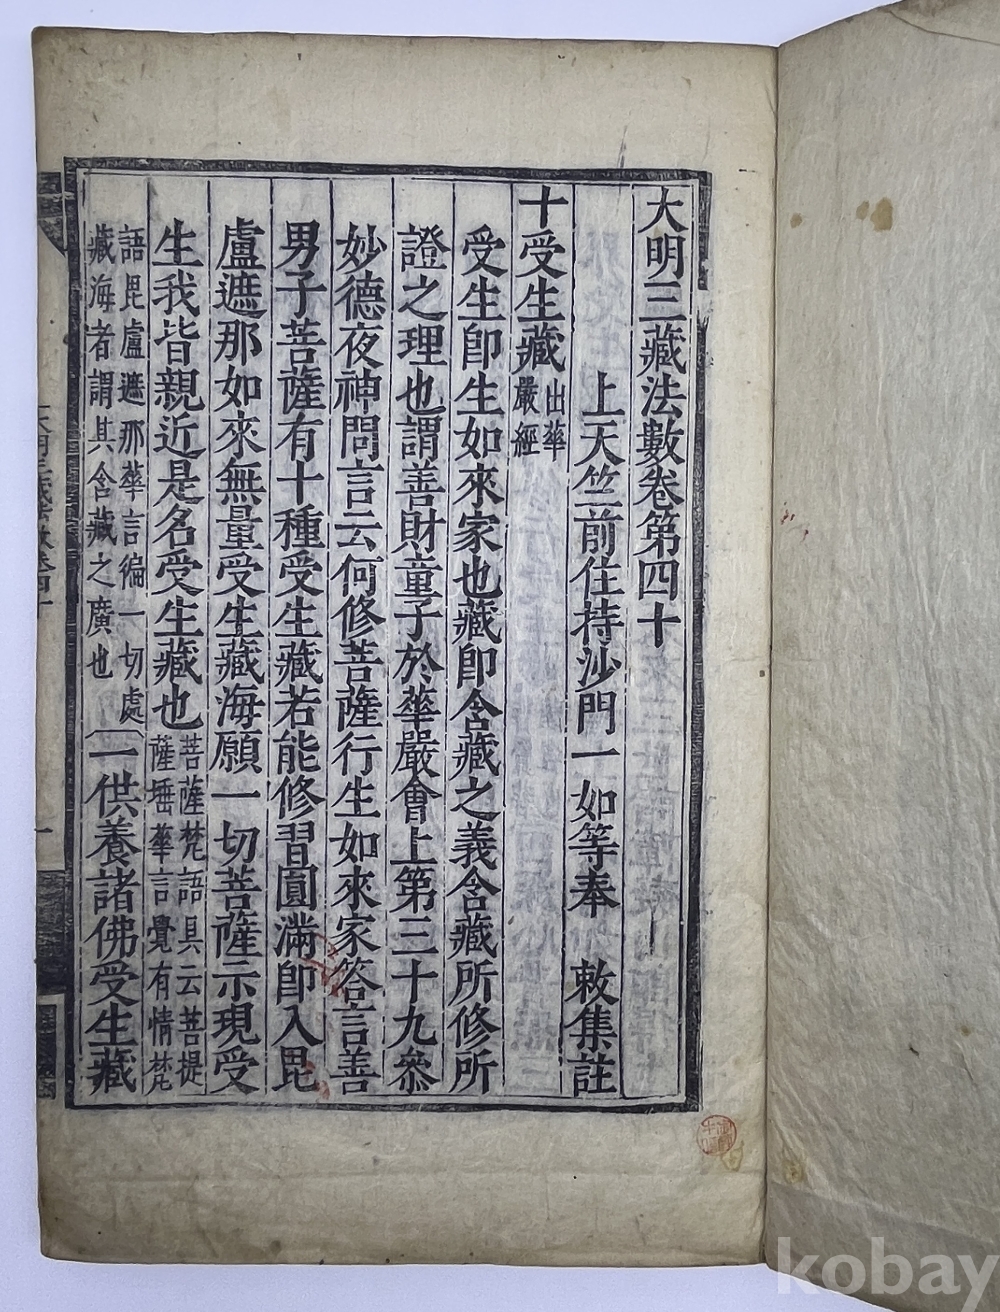 大明三藏法數卷第四十
上天竺前住持沙門一如等奉 敕集註
十受生藏出華嚴經
受生即生如來家也藏即含藏之義含藏所修所
證之理也謂善財童子於華嚴會上第三十九叅
妙德夜神問言云何修菩薩行生如來家答言善
男子菩薩有十種受生藏若能修習圓滿即入毘
盧遮那如來無量受生藏海願一切菩薩示現受
生我皆親近是名受生藏也菩薩梵語具云菩提薩埵華言覺有情梵
語毘盧遮那華言徧一切處藏海者謂其含藏之廣也一供養諸佛受生藏
kobay